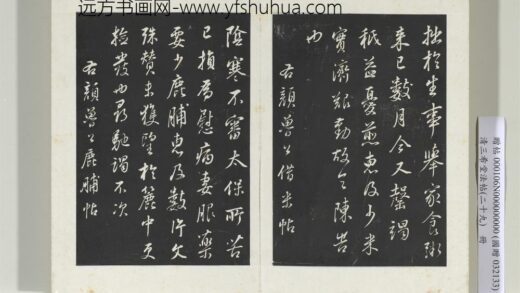 远方书画网-www.yfshuhua.com
拙於生事舉家食粥
来已數月今又罄竭
秖益憂煎惠及少米
實濟艱勤故令陳苦
内
右顔魯公借米帖
陰寒不審太保所苦
已損否慰病妻服藥
要少鹿脯惠及數片文
殊贊未獲望於麓中更
撿發也尋馳謁不次
右顔魯公鹿脯帖
贈帖 000106N000000000 (國贈 032133)
清三希堂法帖(二十九) 冊